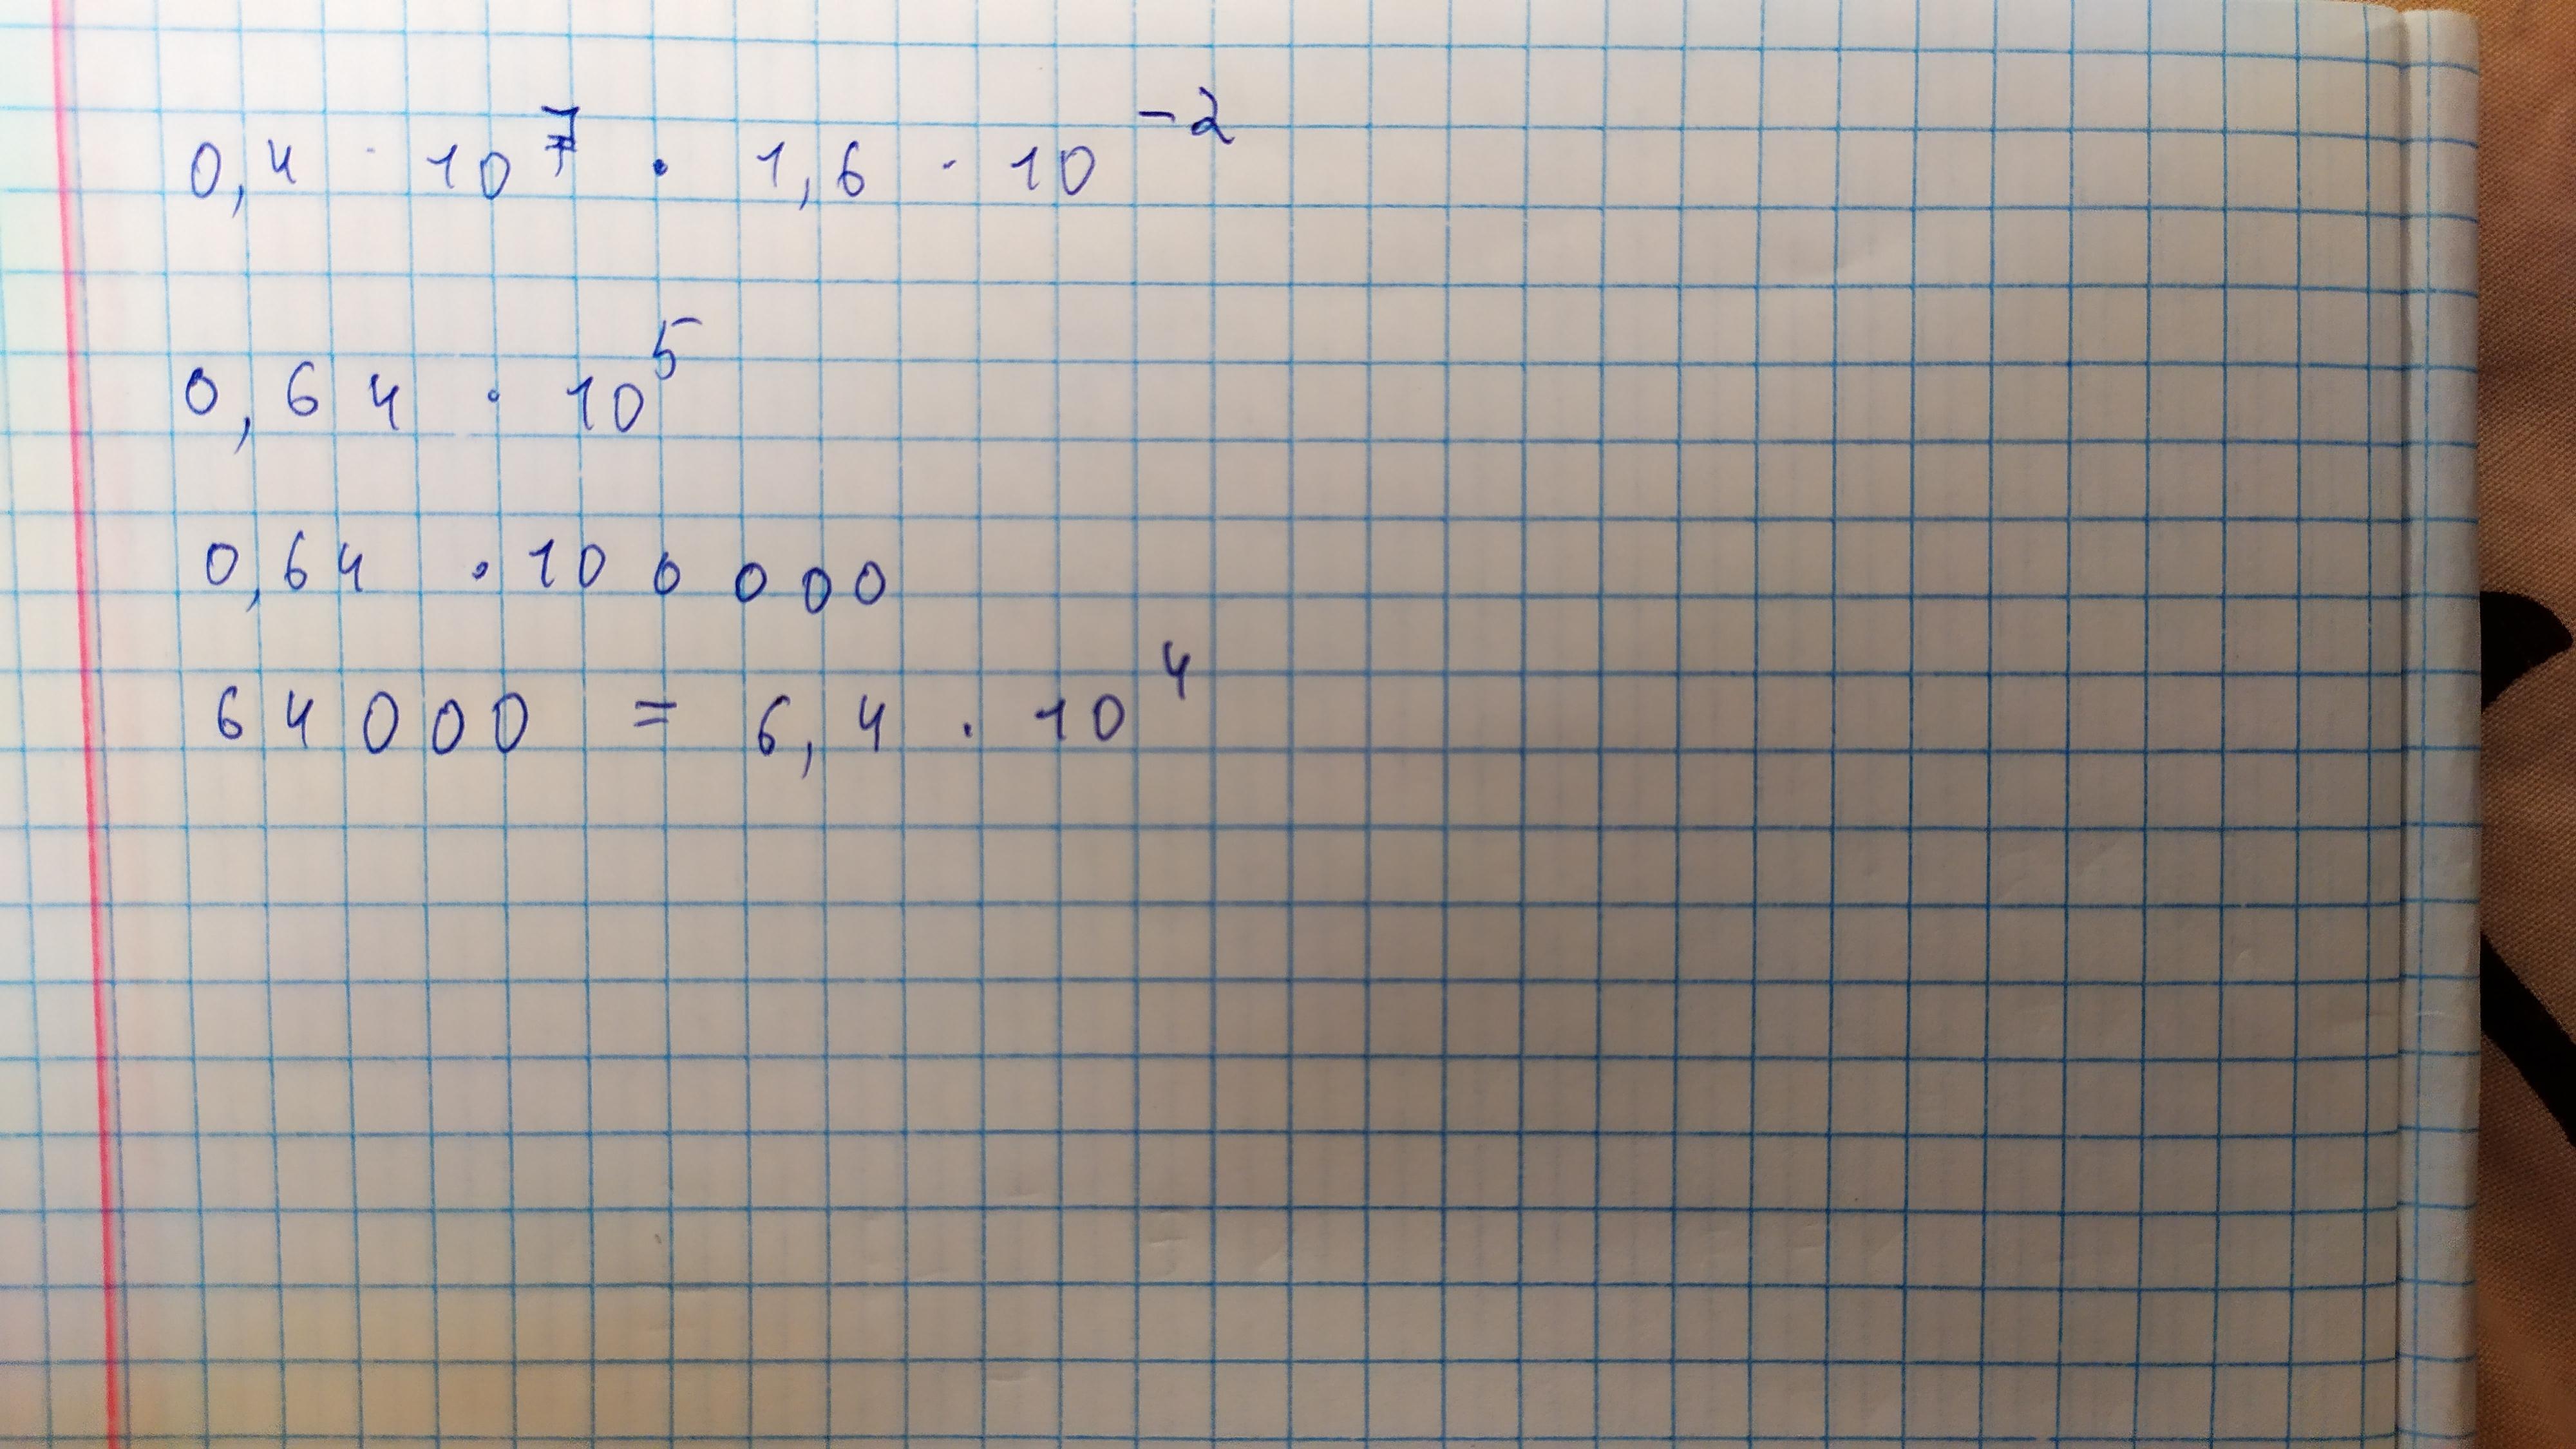 0,4 · 10⁷ · 1,6 · 10⁻²
0,64 · 10⁵
0,64 · 100000
64000 = 6,4 · 10⁴